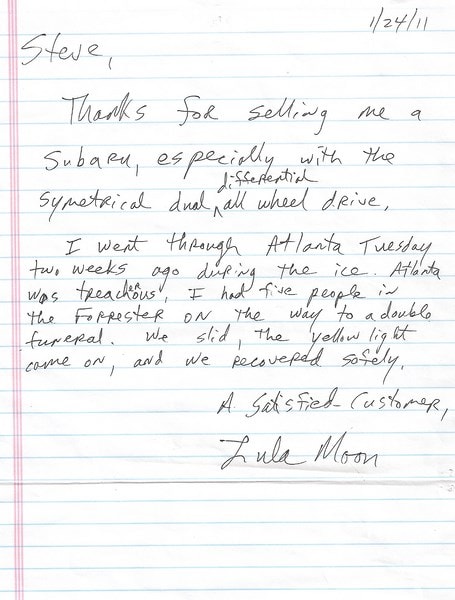 1/24/11
Steve,
Thanks for selling me a
Subaru, especially with the
symetrical dual differential all wheel drive.
I went through Atlanta Tuesday
two weeks ago during the ice. Atlanta
was treacherous, I had five people in
the Forrester on the way to a double
funeral. We slid, the yellow light
came on, and we recovered safely.
A Satisfied Customer,
Lula Moon